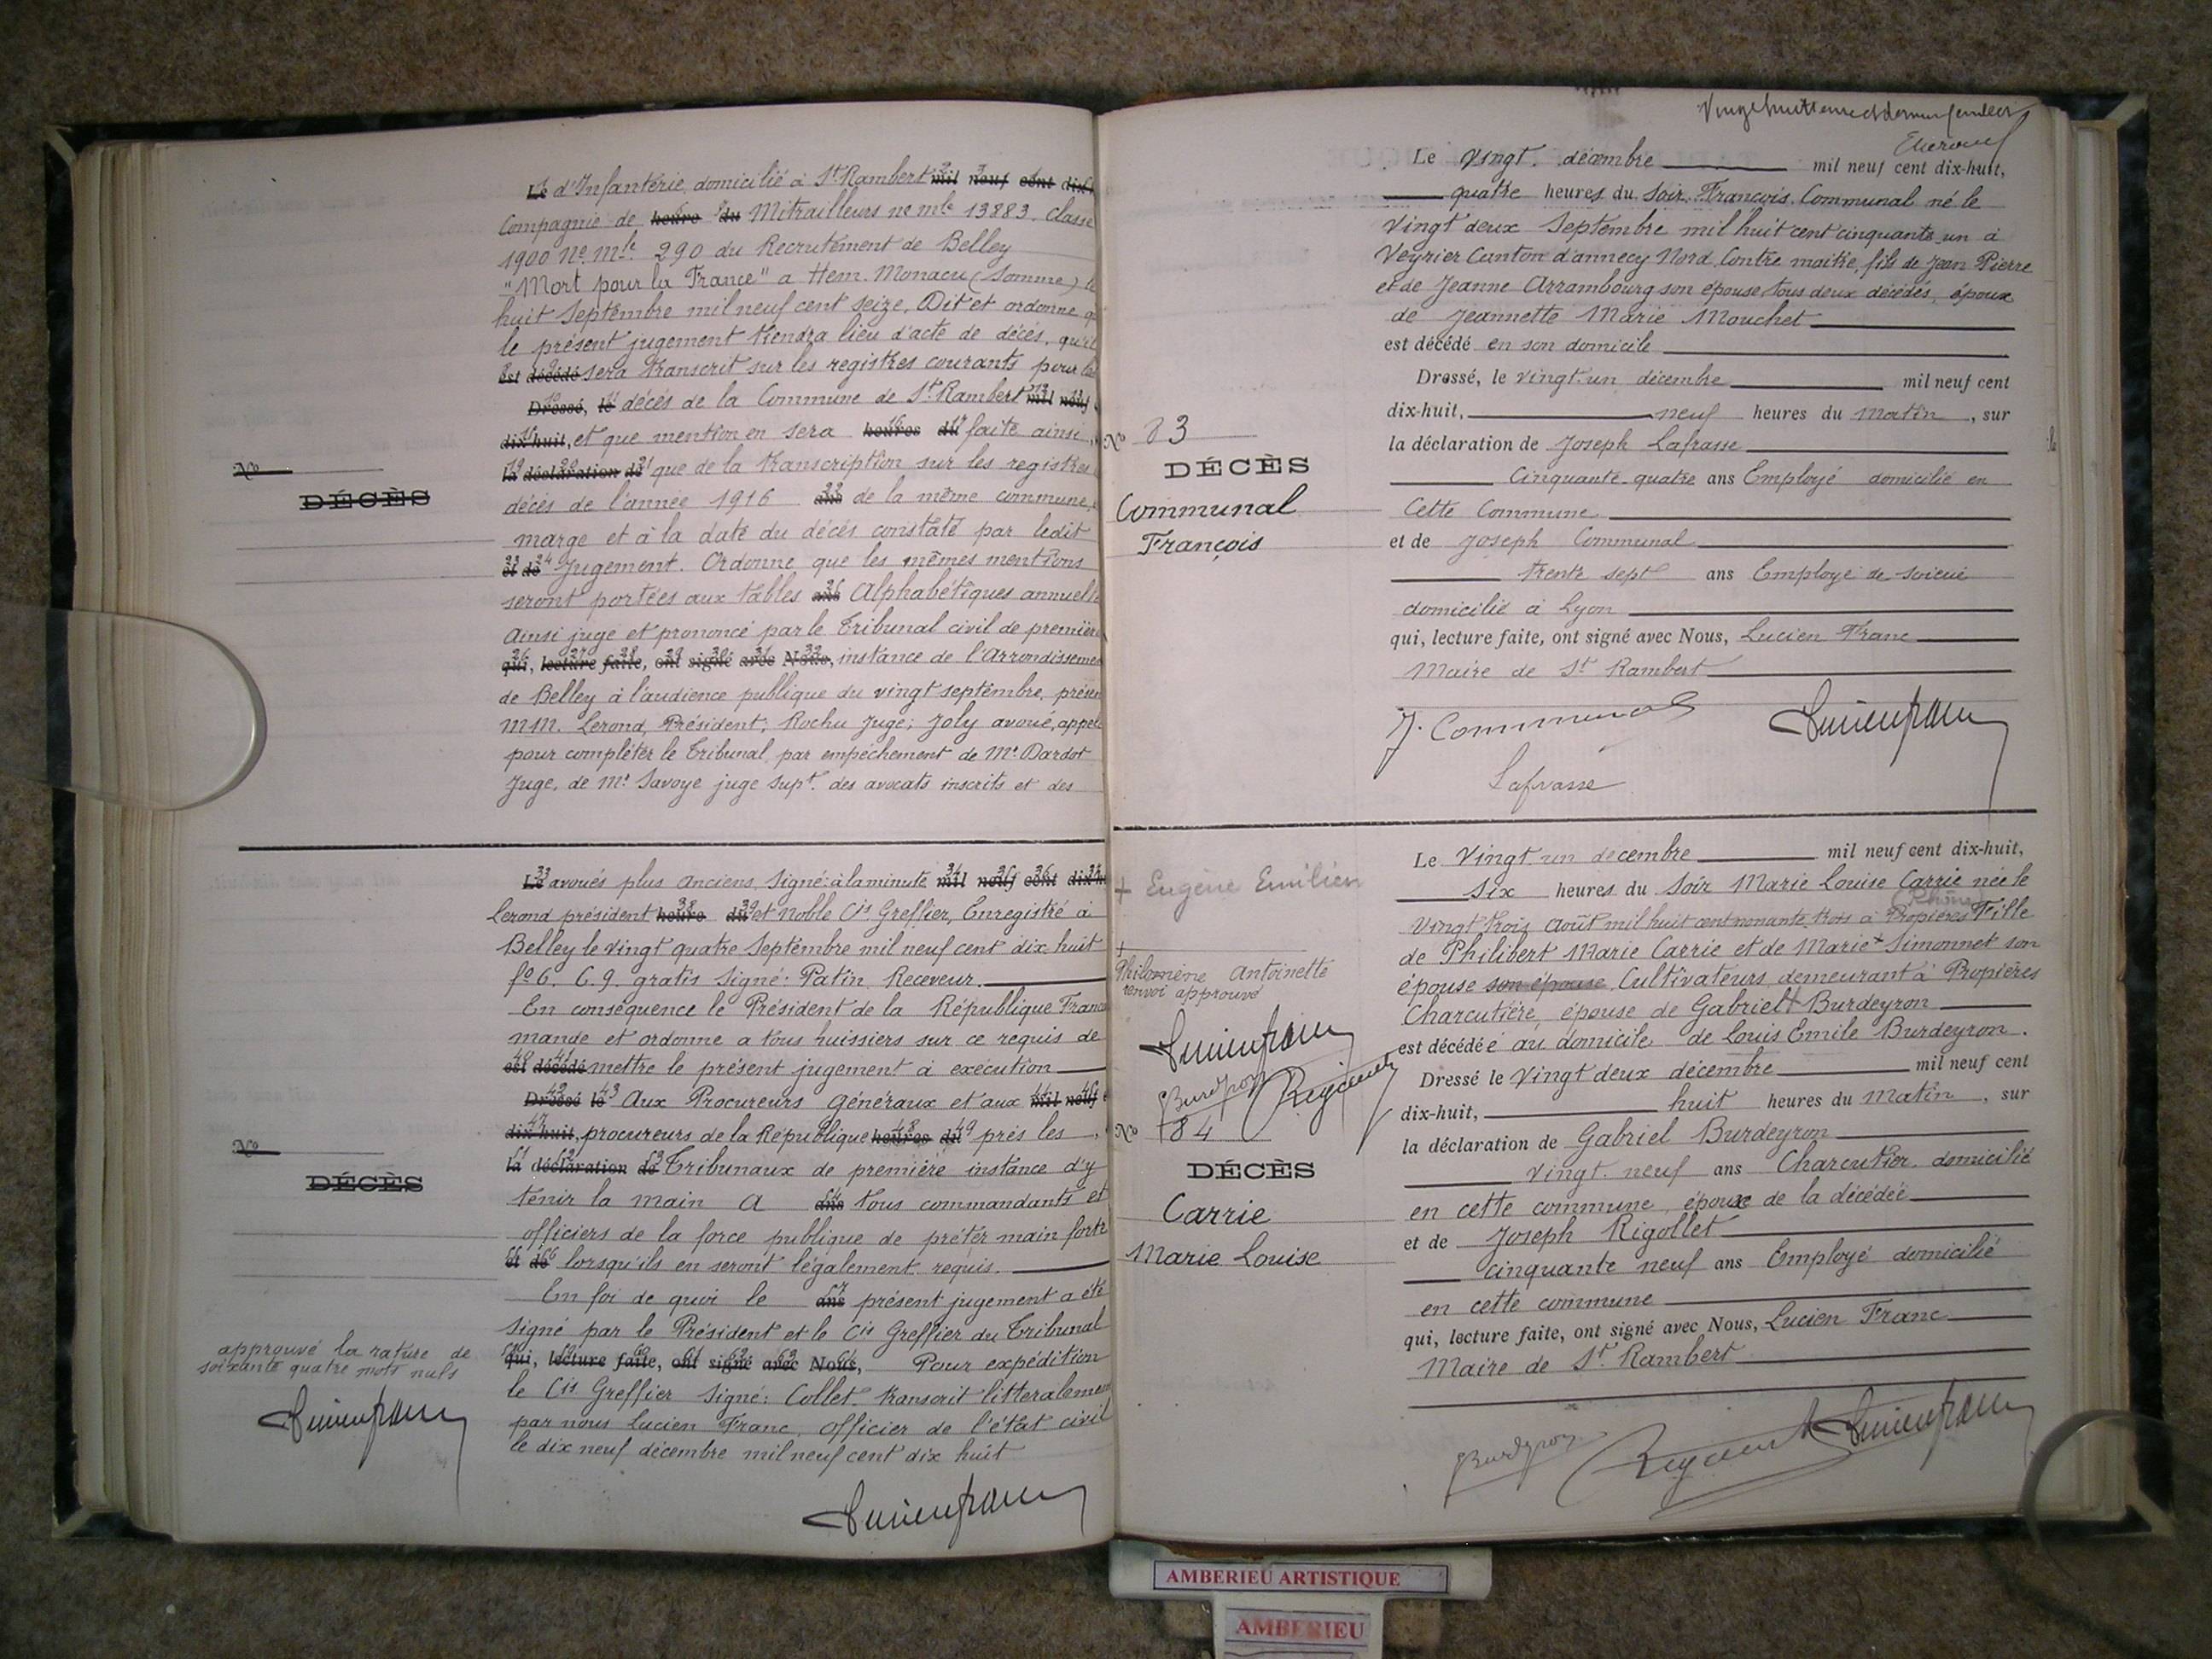 Le d'Infanterie, domicilié à St Rambert mil neuf cent dix
Compagnie de heure du Mitrailleurs no mle 13883. Classe
1900 No. Mle 290 du Recrutement de Belley
"Mort pour la France" a Hem. Monacu (Somme) le
huit Septembre mil neuf cent seize, Dit et ordonne
le présent jugement tiendra lieu d'acte de décès, qu'il
est décédé sera transcrit sur les registres courants pour
Dressé, le décès de la Commune de St. Rambert mil neuf
dix-huit, et que mention en sera heures du faite ainsi
la déclaration de que de la transcription sur les registres
No
DÉCÈS
décès de l'année 1916 ans de la même commune,
marge et à la date du décès constaté par ledit
et de Jugement. Ordonne que les mêmes mentions
seront portées aux tables ans Alphabétiques annuelles
Ainsi jugé et prononcé par le Tribunal civil de première
qui, lecture faite, ont signé avec Nous, instance de l'Arrondissement
de Belley à l'audience publique du vingt septembre, présen
MM. Lerond, Président; Rochu Juge; Joly avoué, appelé
pour compléter le Tribunal, par empêchement de Mr. Dardot
Juge, de Mr Savoye juge supt. des avocats inscrits et des
Le avoués plus anciens, Signé: à la minute mil neuf cent dix-h
Lerond président heure du et Noble Cis Greffier, Enregistré à
Belley le vingt quatre Septembre mil neuf cent dix huit
fo 6. C. 9. gratis Signé: Patin Receveur.
En conséquence le Président de la République Franc
mande et ordonne a tous huissiers sur ce requis de
est décédé mettre le présent jugement à exécution
Dressé le Aux Procureurs Généraux et aux mil neuf
dix-huit, procureurs de la République heures du près les
No
DÉCÈS
la déclaration de Tribunaux de première instance d'y
tenir la main A ans tous commandants et
officiers de la force publique de prêter main forte
et de lorsqu'ils en seront légalement requis.
En foi de quoi le ans présent jugement a été
Signé par le Président et le Cis Greffier du Tribunal
qui, lecture faite, ont signé avec Nous, Pour expédition
le Cis Greffier Signé: Collet. transcrit littéralement
par nous Lucien Franc, officier de l'état civil
le dix neuf décembre mil neuf cent dix huit
approuvé la rature de
soixante quatre mots nuls
Lucien Franc
Lucien Franc
Vingt huitième et dernier feuillet
Le Vingt décembre mil neuf cent dix-huit,
quatre heures du soir François Communal né le
Vingt deux Septembre mil huit cent cinquante un à
Veyrier Canton d'annecy Nord, Contre maître, fils de Jean Pierre
et de Jeanne Arrambourg son épouse, tous deux décédés, époux
de Jeannette Marie Mouchet
est décédé en son domicile
Dressé, le vingt-un décembre mil neuf cent
dix-huit, neuf heures du Matin, sur
No 83
DÉCÈS
Communal
François
la déclaration de Joseph Lafrasse
Cinquante-quatre ans Employé domicilié en
Cette Commune
et de Joseph Communal
trente sept ans Employé de soierie
domicilié à Lyon
qui, lecture faite, ont signé avec Nous, Lucien Franc
Maire de St Rambert
J. Communal
Lucien Franc
Lafrasse
Le Vingt un décembre mil neuf cent dix-huit,
six heures du Soir Marie Louise Carrie née le
Rhône
Vingt trois août mil huit cent nonante trois à Propières Fille
de Philibert Marie Carrie et de Marie + Simonnet son
épouse son épouse, Cultivateurs, demeurant à Propières
Charcutière, épouse de Gabriel + Burdeyron
est décédée au domicile de Louis Emile Burdeyron.
Dressé le Vingt deux décembre mil neuf cent
dix-huit, huit heures du Matin, sur
+ Eugène Emilien
+
Philomène Antoinette
renvoi approuvé
Lucien Franc
Burdeyron
No 84
DÉCÈS
Carrie
Marie Louise
la déclaration de Gabriel Burdeyron
vingt-neuf ans Charcutier domicilié
en cette commune, époux de la décédée
et de Joseph Rigollet
cinquante neuf ans Employé domicilié
en cette commune
qui, lecture faite, ont signé avec Nous, Lucien Franc
Maire de St. Rambert
Burdeyron
Lucien Franc
AMBERIEU ARTISTIQUE
AMBERIEU